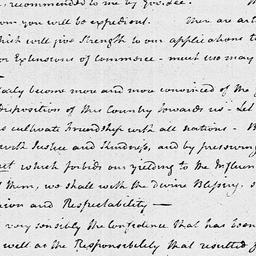 recommended to me by you. See.
you will be expedient. There are
which will give Strength to our applications to
Extensions of Commerce - must we may
-
become more and more convinced of the
Disposition of this Country towards us - Let
cultivate Friendship with all nations - B
with Justice and Kindness, and by preserving
which forbids our yielding to the Influen
them, we shall with the Divine Blessing,
and Respectability -
very sensibly the Confidence that has been
well as the Responsibility that resulted f